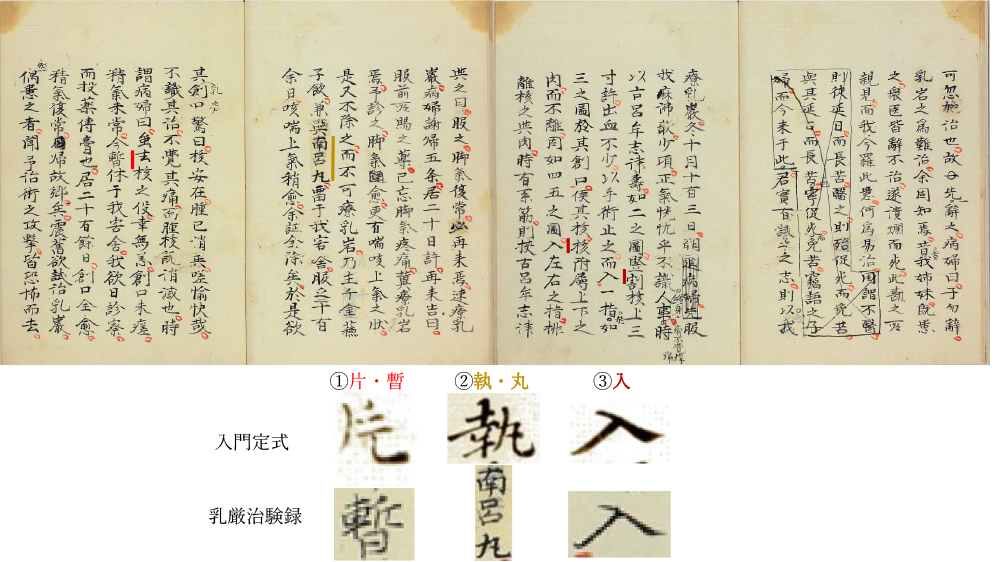 可忽治也故母先辭之病婦曰子勿辭
乳岩之爲難治余固知焉昔我姉妹既患
之衆医皆辭不治遂潰爛而死此之所
親見而我今羅此患何爲易治因謂不醫
則徒延日而長苦醫之則殆促死而免苦
與其延日而長苦寧促死免苦竊語之子
帰而今来于此君實有識之之志則以我
療乳巖冬十月十有三日朝病婦服
我麻沸散少頃正氣恍惚乎不識人事時
以古呂牟志津壽如二之圖豎割核上三
寸許出血不少以手術止之而入一指如
三之圖於其創口使其核核附膚上下之
肉而不離周如四五之圖入左右之指排
離核之與肉時有系筋則按古呂牟志津
與之曰服之脚氣復常必再来焉速療乳
巖病婦謝帰五条居二十日許再来告曰
服前所賜之藥已忘脚氣疼痛冀療乳岩
焉乎診之脚氣雖愈更有喘咳上氣之状
是又不除之而不可療乳岩乃主千金蕉
子飲兼與南呂丸畱于我客舎服之十有
余日咳喘上氣稍愈余証全除矣於是欲
其創口驚曰核安在腫已消矣噫愉快哉
不識其治不覺其痛而腫核既消滅也時
謂病婦曰虽去核之後幸無恙創口未癒
精氣未常今暫休于我客舎我欲日診察
而投薬傳膏也居二十有餘日創口全愈
精氣復常因帰故郷矣震舊欲茲治乳巖
偶患之者聞予治術之攻撃皆恐怖而去
①片・暫 ②執・丸 ③入
入門定式
片 執 入
乳厳治験録
暫 南呂丸 入